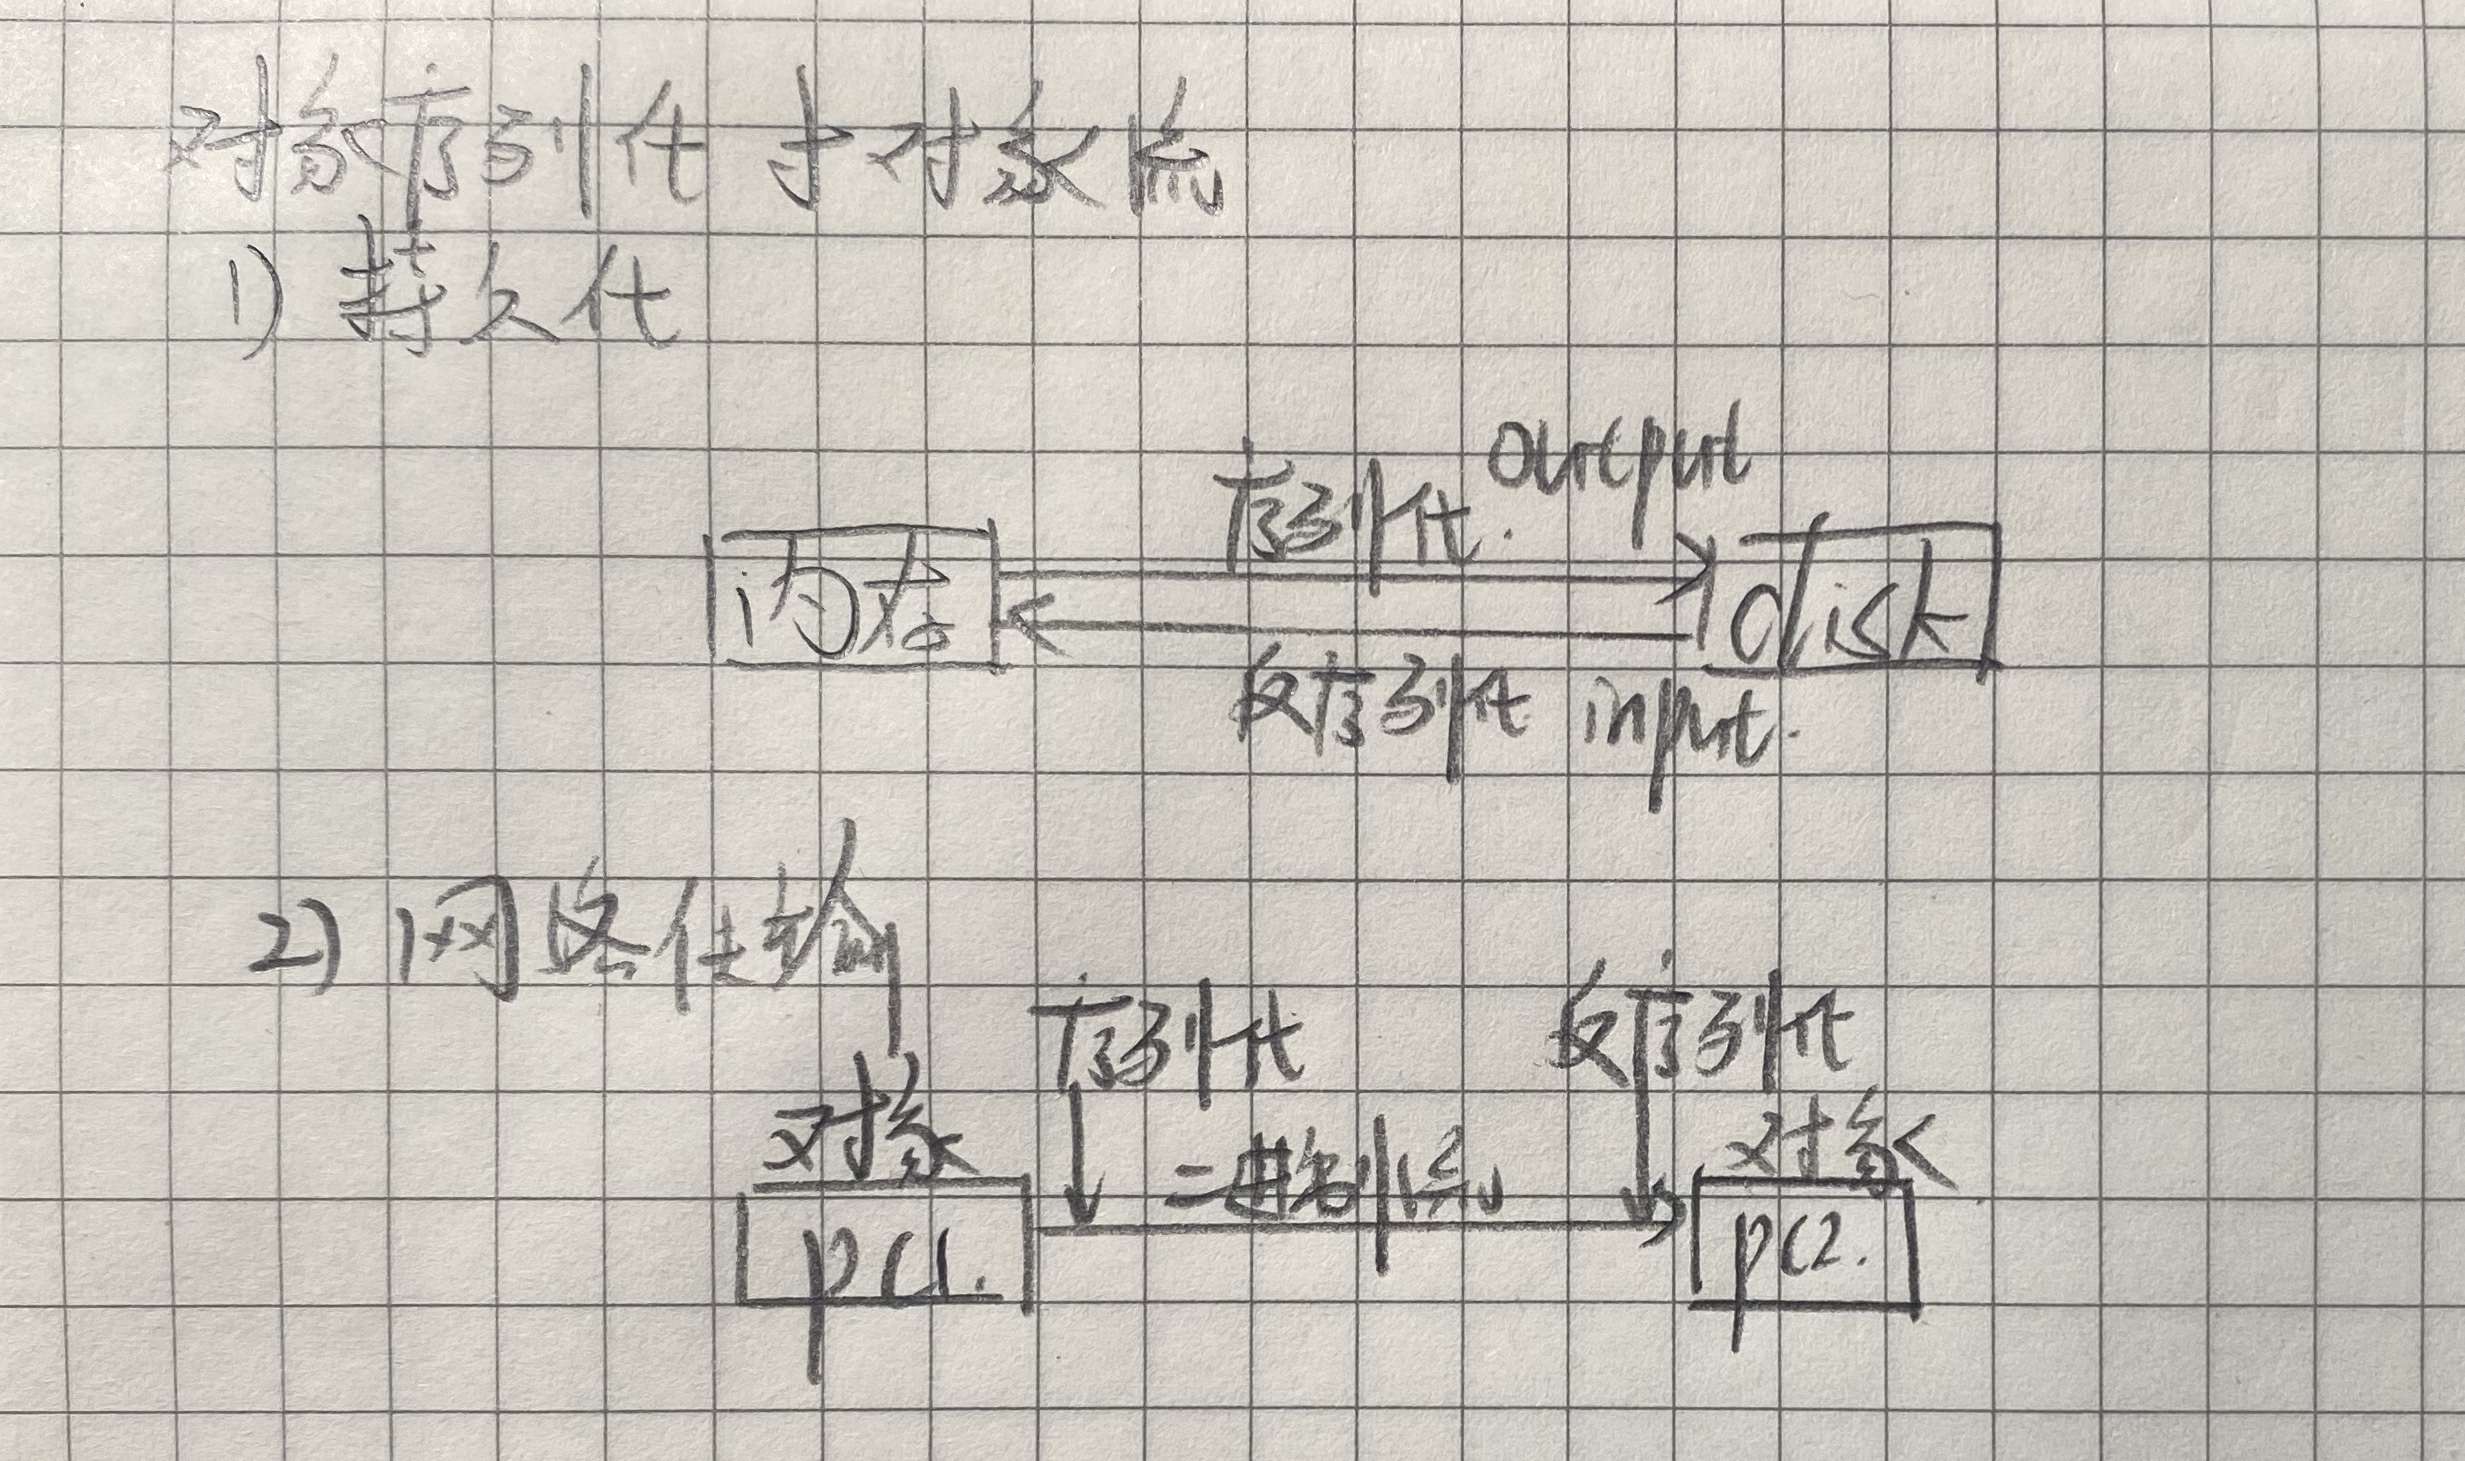 对象序列化与对象流
1) 持久化
序列化. output
内存
disk
反序列化 input.
2) 网络传输
序列化
反序列化
对象
二进制流
对象
pc1.
pc2.